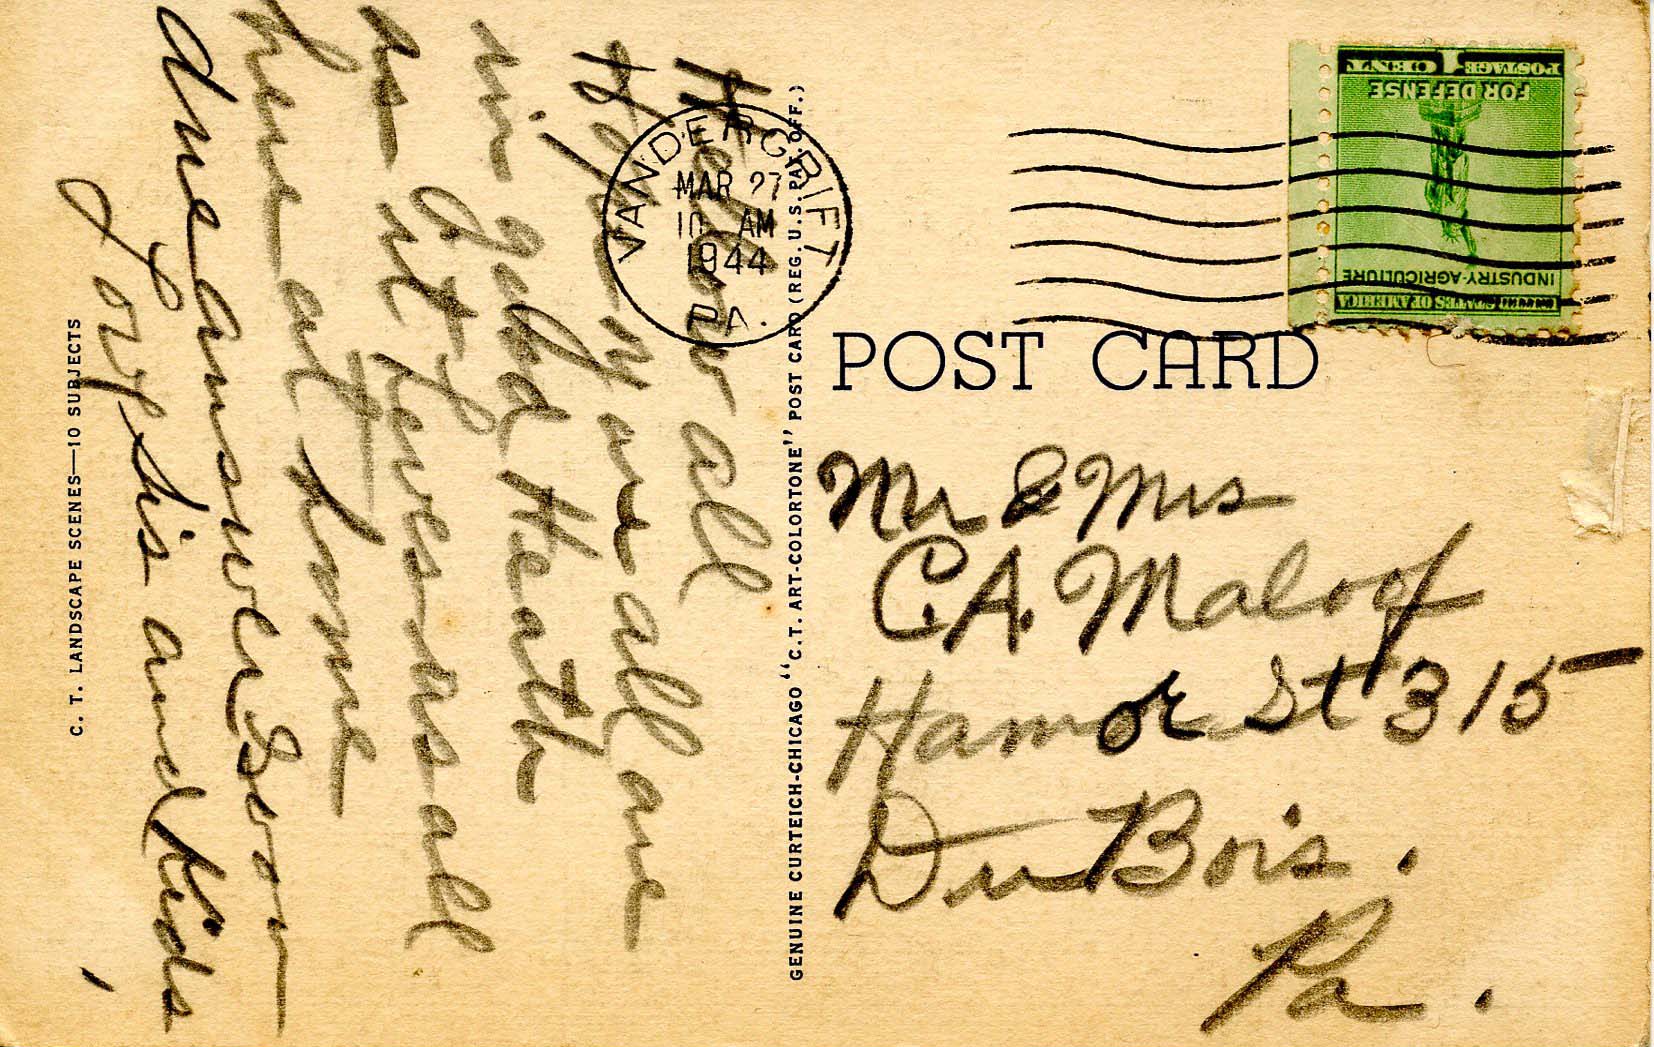 Hellow all
are all are
in Heath
as it leves us all
here at home
answer Soon
Sis and Kids
C. T. LANDSCAPE SCENES—10 SUBJECTS
GENUINE CURTEICH-CHICAGO "C.T. ART-COLORTONE" POST CARD (REG. U.S. PAT. OFF.)
VANDERGRIFT
MAR 27
10 AM
1944
PA.
UNITED STATES OF AMERICA
INDUSTRY-AGRICULTURE
FOR DEFENSE
POSTAGE 1 CENT
POST CARD
Mr & Mrs
C.A. Maloof
Hamor St 315
Du Bois.
Pa.